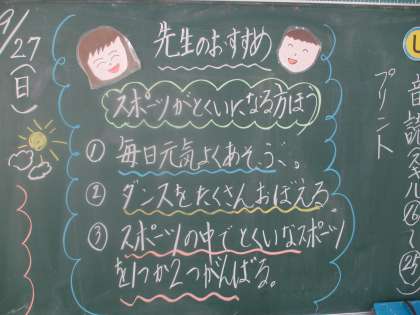 9/27
(日)
先生のおすすめ
スポーツがとくいになる方ほう
① 毎日元気よくあそぶ。
② ダンスをたくさんおぼえる
③ スポーツの中でとくいなスポーツ
を1つか2つがんばる。
プリント
音読